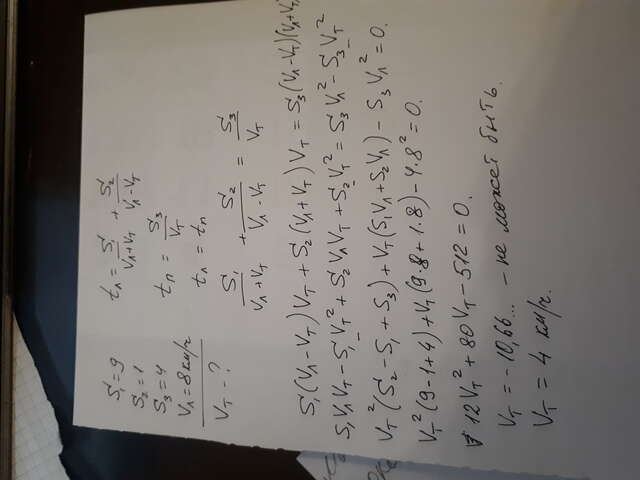 S₁ = 9
S₂ = 1
S₃ = 4
Vл = 8 км/ч
Vт - ?
tл = S₁/(Vл+Vт) + S₂/(Vл-Vт)
tп = S₃/Vт
tл = tп
S₁/(Vл+Vт) + S₂/(Vл-Vт) = S₃/Vт
S₁(Vл-Vт)Vт + S₂(Vл+Vт)Vт = S₃(Vл-Vт)(Vл+Vт)
S₁VлVт - S₁Vт² + S₂VлVт + S₂Vт² = S₃Vл² - S₃Vт²
Vт²(S₂-S₁+S₃) + Vт(S₁Vл+S₂Vл) - S₃Vл² = 0.
Vт²(9-1+4) + Vт(9·8+1·8) - 4·8² = 0.
12Vт² + 80Vт - 512 = 0.
Vт = -10,66... - не может быть.
Vт = 4 км/ч.